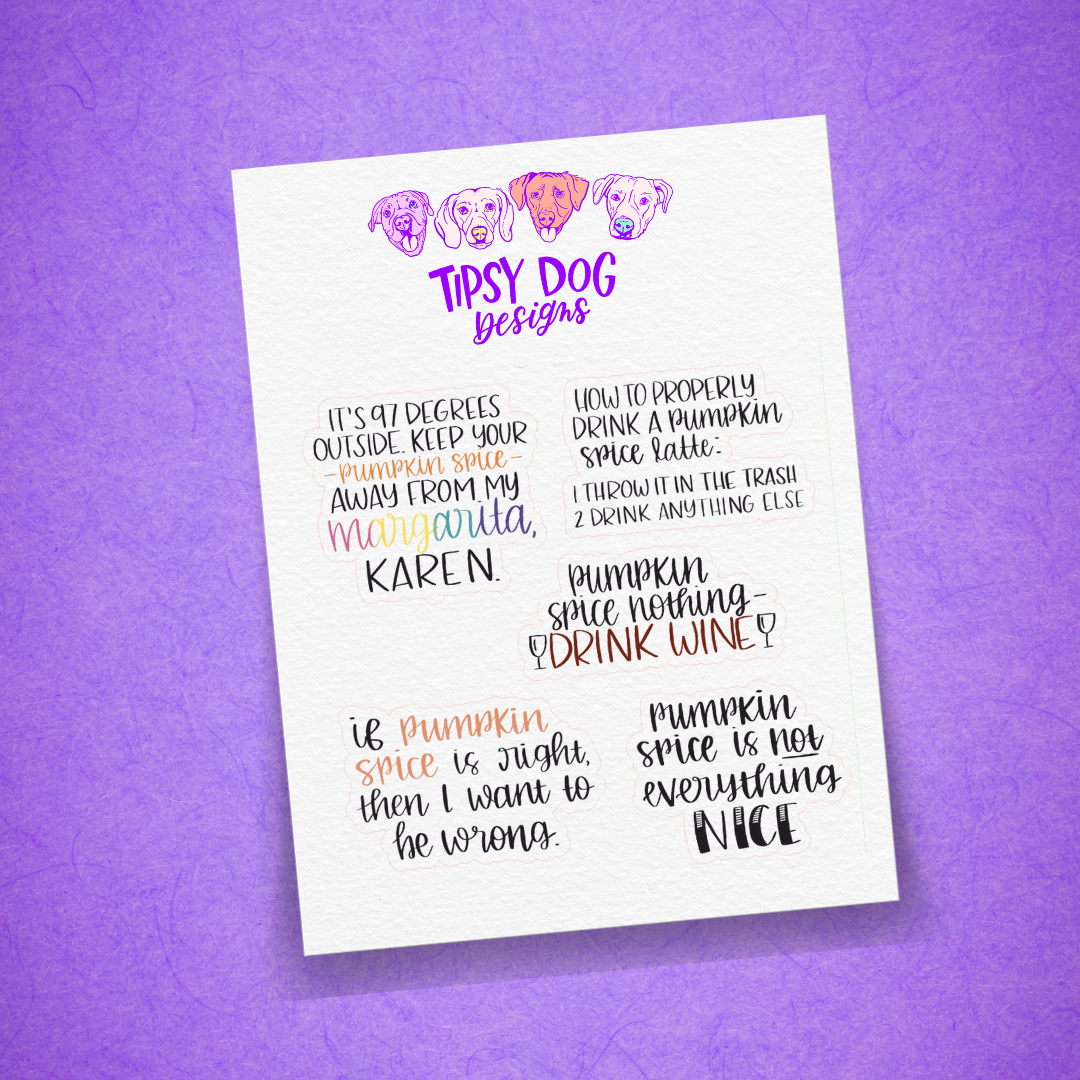 TIPSY DOG
Designs
IT'S 97 DEGREES
OUTSIDE. KEEP YOUR
-pumpkin spice-
AWAY FROM MY
margarita,
KAREN.
HOW TO PROPERLY
DRINK A pumpkin
spice latte:
1 THROW IT IN THE TRASH
2 DRINK ANYTHING ELSE
pumpkin
spice nothing-
DRINK WINE
if pumpkin
spice is right,
then I want to
be wrong.
pumpkin
spice is not
everything
NICE